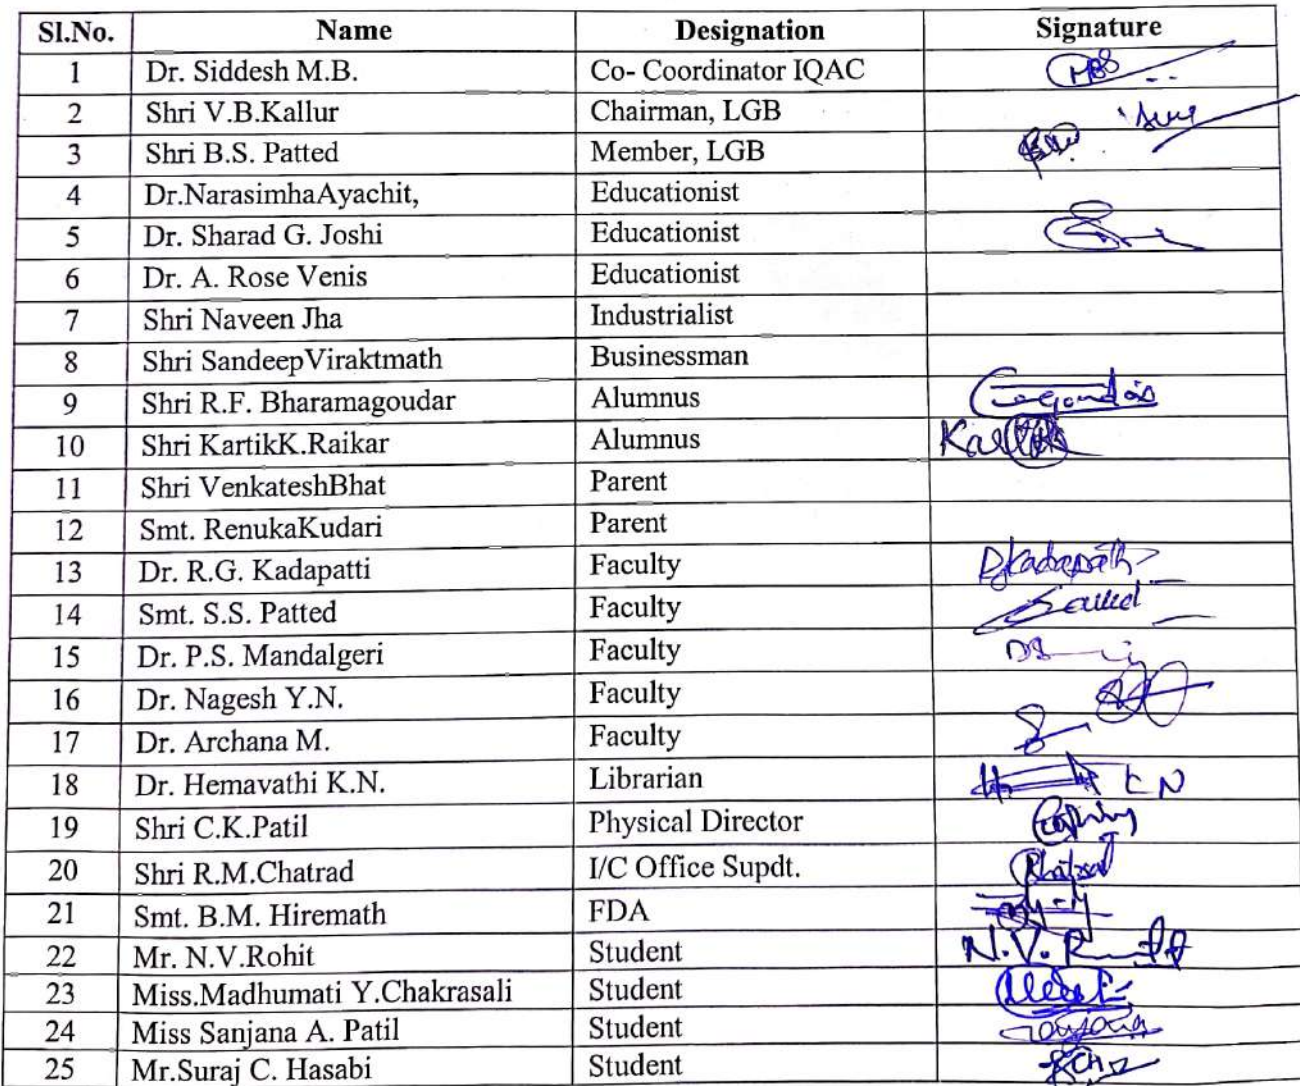 Sl.No. Name Designation Signature
1 Dr. Siddesh M.B. Co- Coordinator IQAC MBS
2 Shri V.B.Kallur Chairman, LGB
3 Shri B.S. Patted Member, LGB
4 Dr.NarasimhaAyachit, Educationist
5 Dr. Sharad G. Joshi Educationist
6 Dr. A. Rose Venis Educationist
7 Shri Naveen Jha Industrialist
8 Shri SandeepViraktmath Businessman
9 Shri R.F. Bharamagoudar Alumnus
10 Shri KartikK.Raikar Alumnus
11 Shri VenkateshBhat Parent
12 Smt. RenukaKudari Parent
13 Dr. R.G. Kadapatti Faculty
14 Smt. S.S. Patted Faculty
15 Dr. P.S. Mandalgeri Faculty
16 Dr. Nagesh Y.N. Faculty
17 Dr. Archana M. Faculty
18 Dr. Hemavathi K.N. Librarian
19 Shri C.K.Patil Physical Director
20 Shri R.M.Chatrad I/C Office Supdt.
21 Smt. B.M. Hiremath FDA
22 Mr. N.V.Rohit Student N.V.
23 Miss.Madhumati Y.Chakrasali Student
24 Miss Sanjana A. Patil Student
25 Mr.Suraj C. Hasabi Student